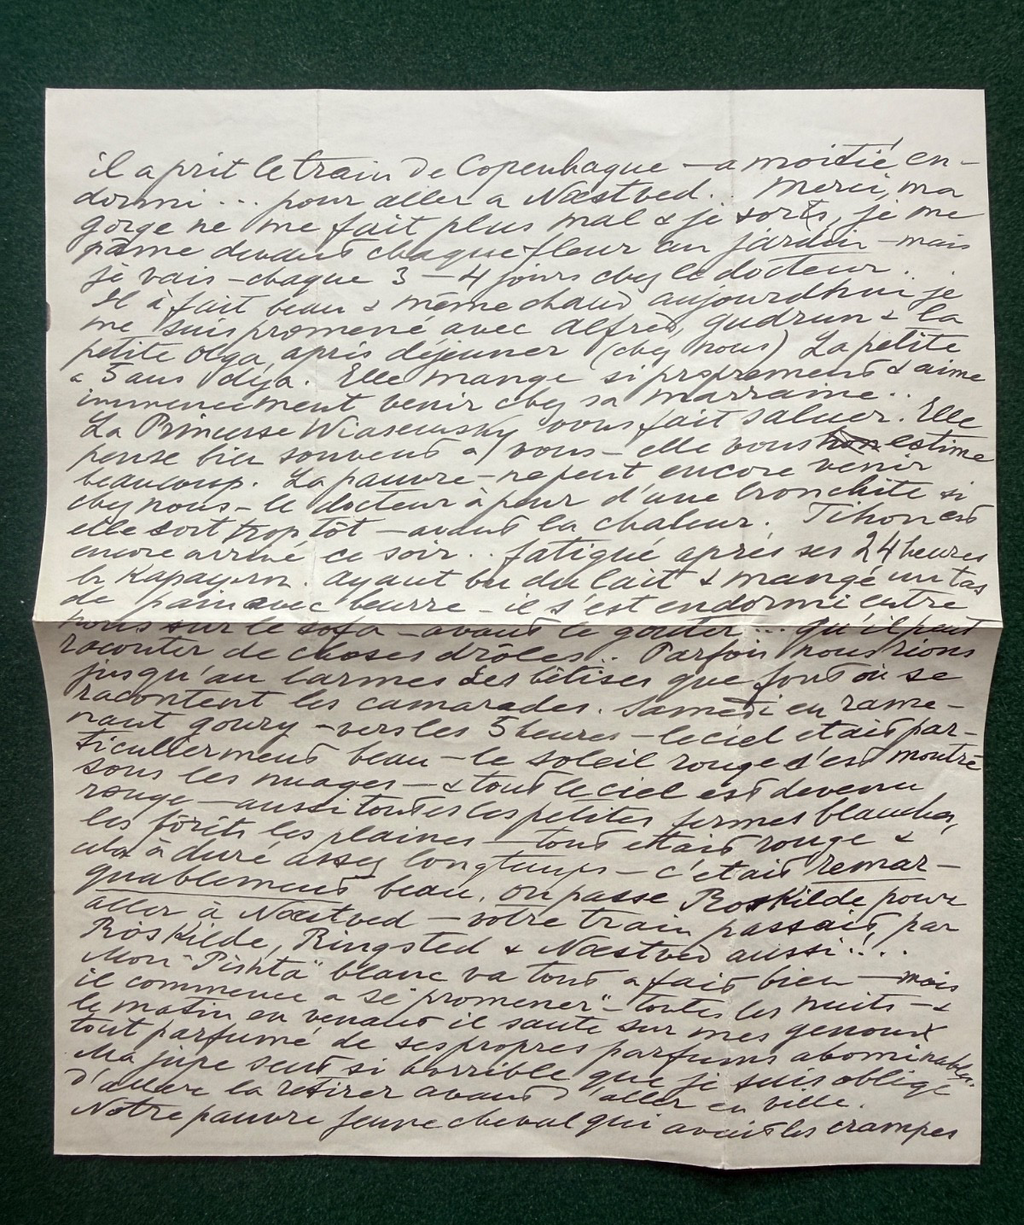 il a prit le train de Copenhague – a moitié en-
dormi ... pour aller a Næstved... Merci, ma
gorge ne me fait plus mal & je sorts, je me
pâme devant chaque fleur au jardin – mais
je vais – chaque 3 – 4 jours chez le docteur..
Il à fait beau & même chaud aujourdhui je
me suis promené avec Alfred, Gudrun & la
petite Olga, après déjeuner (chez nous) La petite
a 5 ans déja. Elle mange si proprement & aime
immencement venir chez sa marraine..
La Princesse Wiasemsky vous fait saluer. Elle
pense bien souvent a vous – elle vous estime
beaucoup. La pauvre – ne peut encore venir
chez nous – le docteur à peur d'une bronchite si
elle sort trop tôt – avant la chaleur. Tihon est
encore arrivé ce soir.. fatigué après ses 24 heures
ayant bu du lait & mangé un tas
de pain avec beurre – il s'est endormi entre
nous sur le sofa – avant le goûter... qu'il peut
raconter de choses drôles.. Parfois nous rions
jusqu'au larmes des bêtises que font ou se
racontent les camarades. Samedi en rame-
nant Goury – vers les 5 heures – le ciel etait par-
ticullerment beau – le soleil rouge s'est montré
sous les nuages – & tout le ciel est devenu
rouge – aussi toutes les petites fermes blanches,
les forêts les plaines – tout etait rouge &
à duré assez longtemps – c'etait remar-
quablement beau. On passe Roskilde pour
aller à Næstved – votre train passait par
Roskilde, Ringsted & Næstved aussi!...
Mon "Pishta" blanc va tout a fait bien – mais
il commence a se "promener" – toutes les nuits – &
le matin en venant il saute sur mes genoux
tout parfumé de ses propres parfums abominables.
Ma jupe sent si horrible que je suis obligé
d'allere la retirer avant d'aller en ville.
Notre pauvre jeune cheval qui avait les crampes